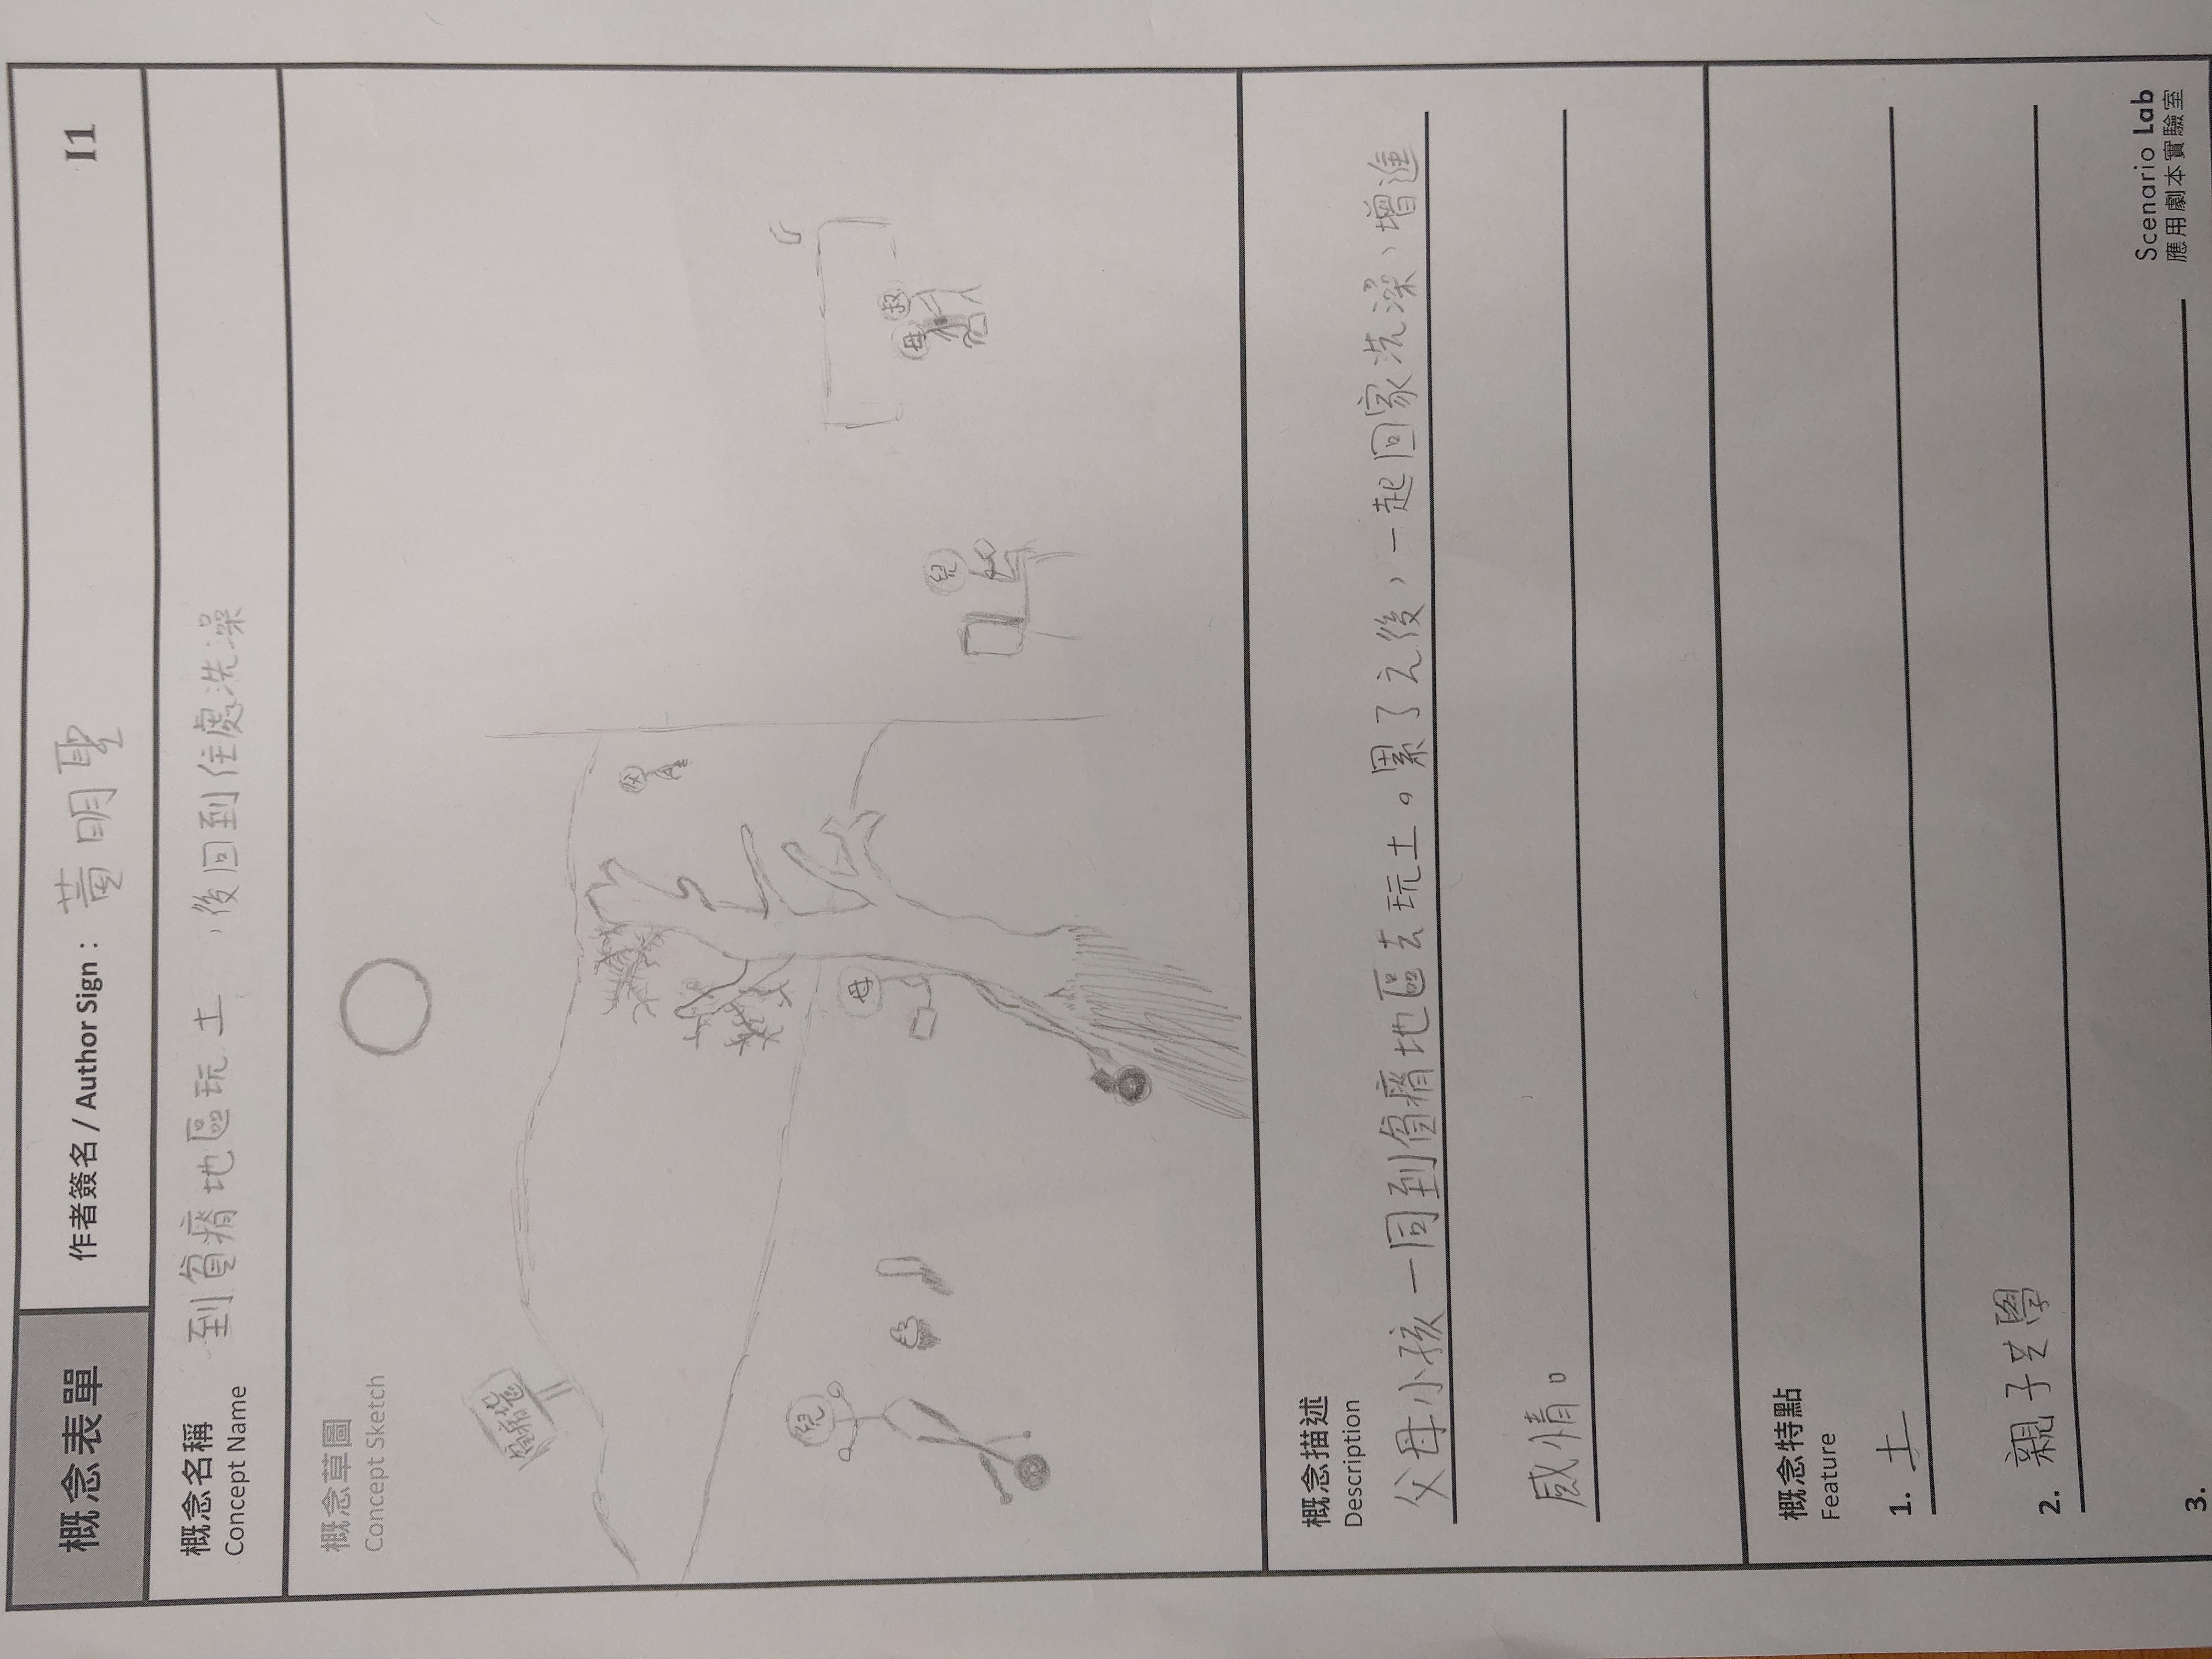 概念表單
作者簽名 / Author Sign： 黃明聖
I1
概念名稱 到貧瘠地區玩土 ，後回到住處洗澡
Concept Name
概念草圖
Concept Sketch
貧瘠地區
父
兒
母
兒
母 叔
概念描述
Description
父母小孩一同到貧瘠地區去玩土。累了之後，一起回家洗澡，增進
感情。
概念特點
Feature
1. 土
2. 親子共學
3.
Scenario Lab
應用劇本實驗室